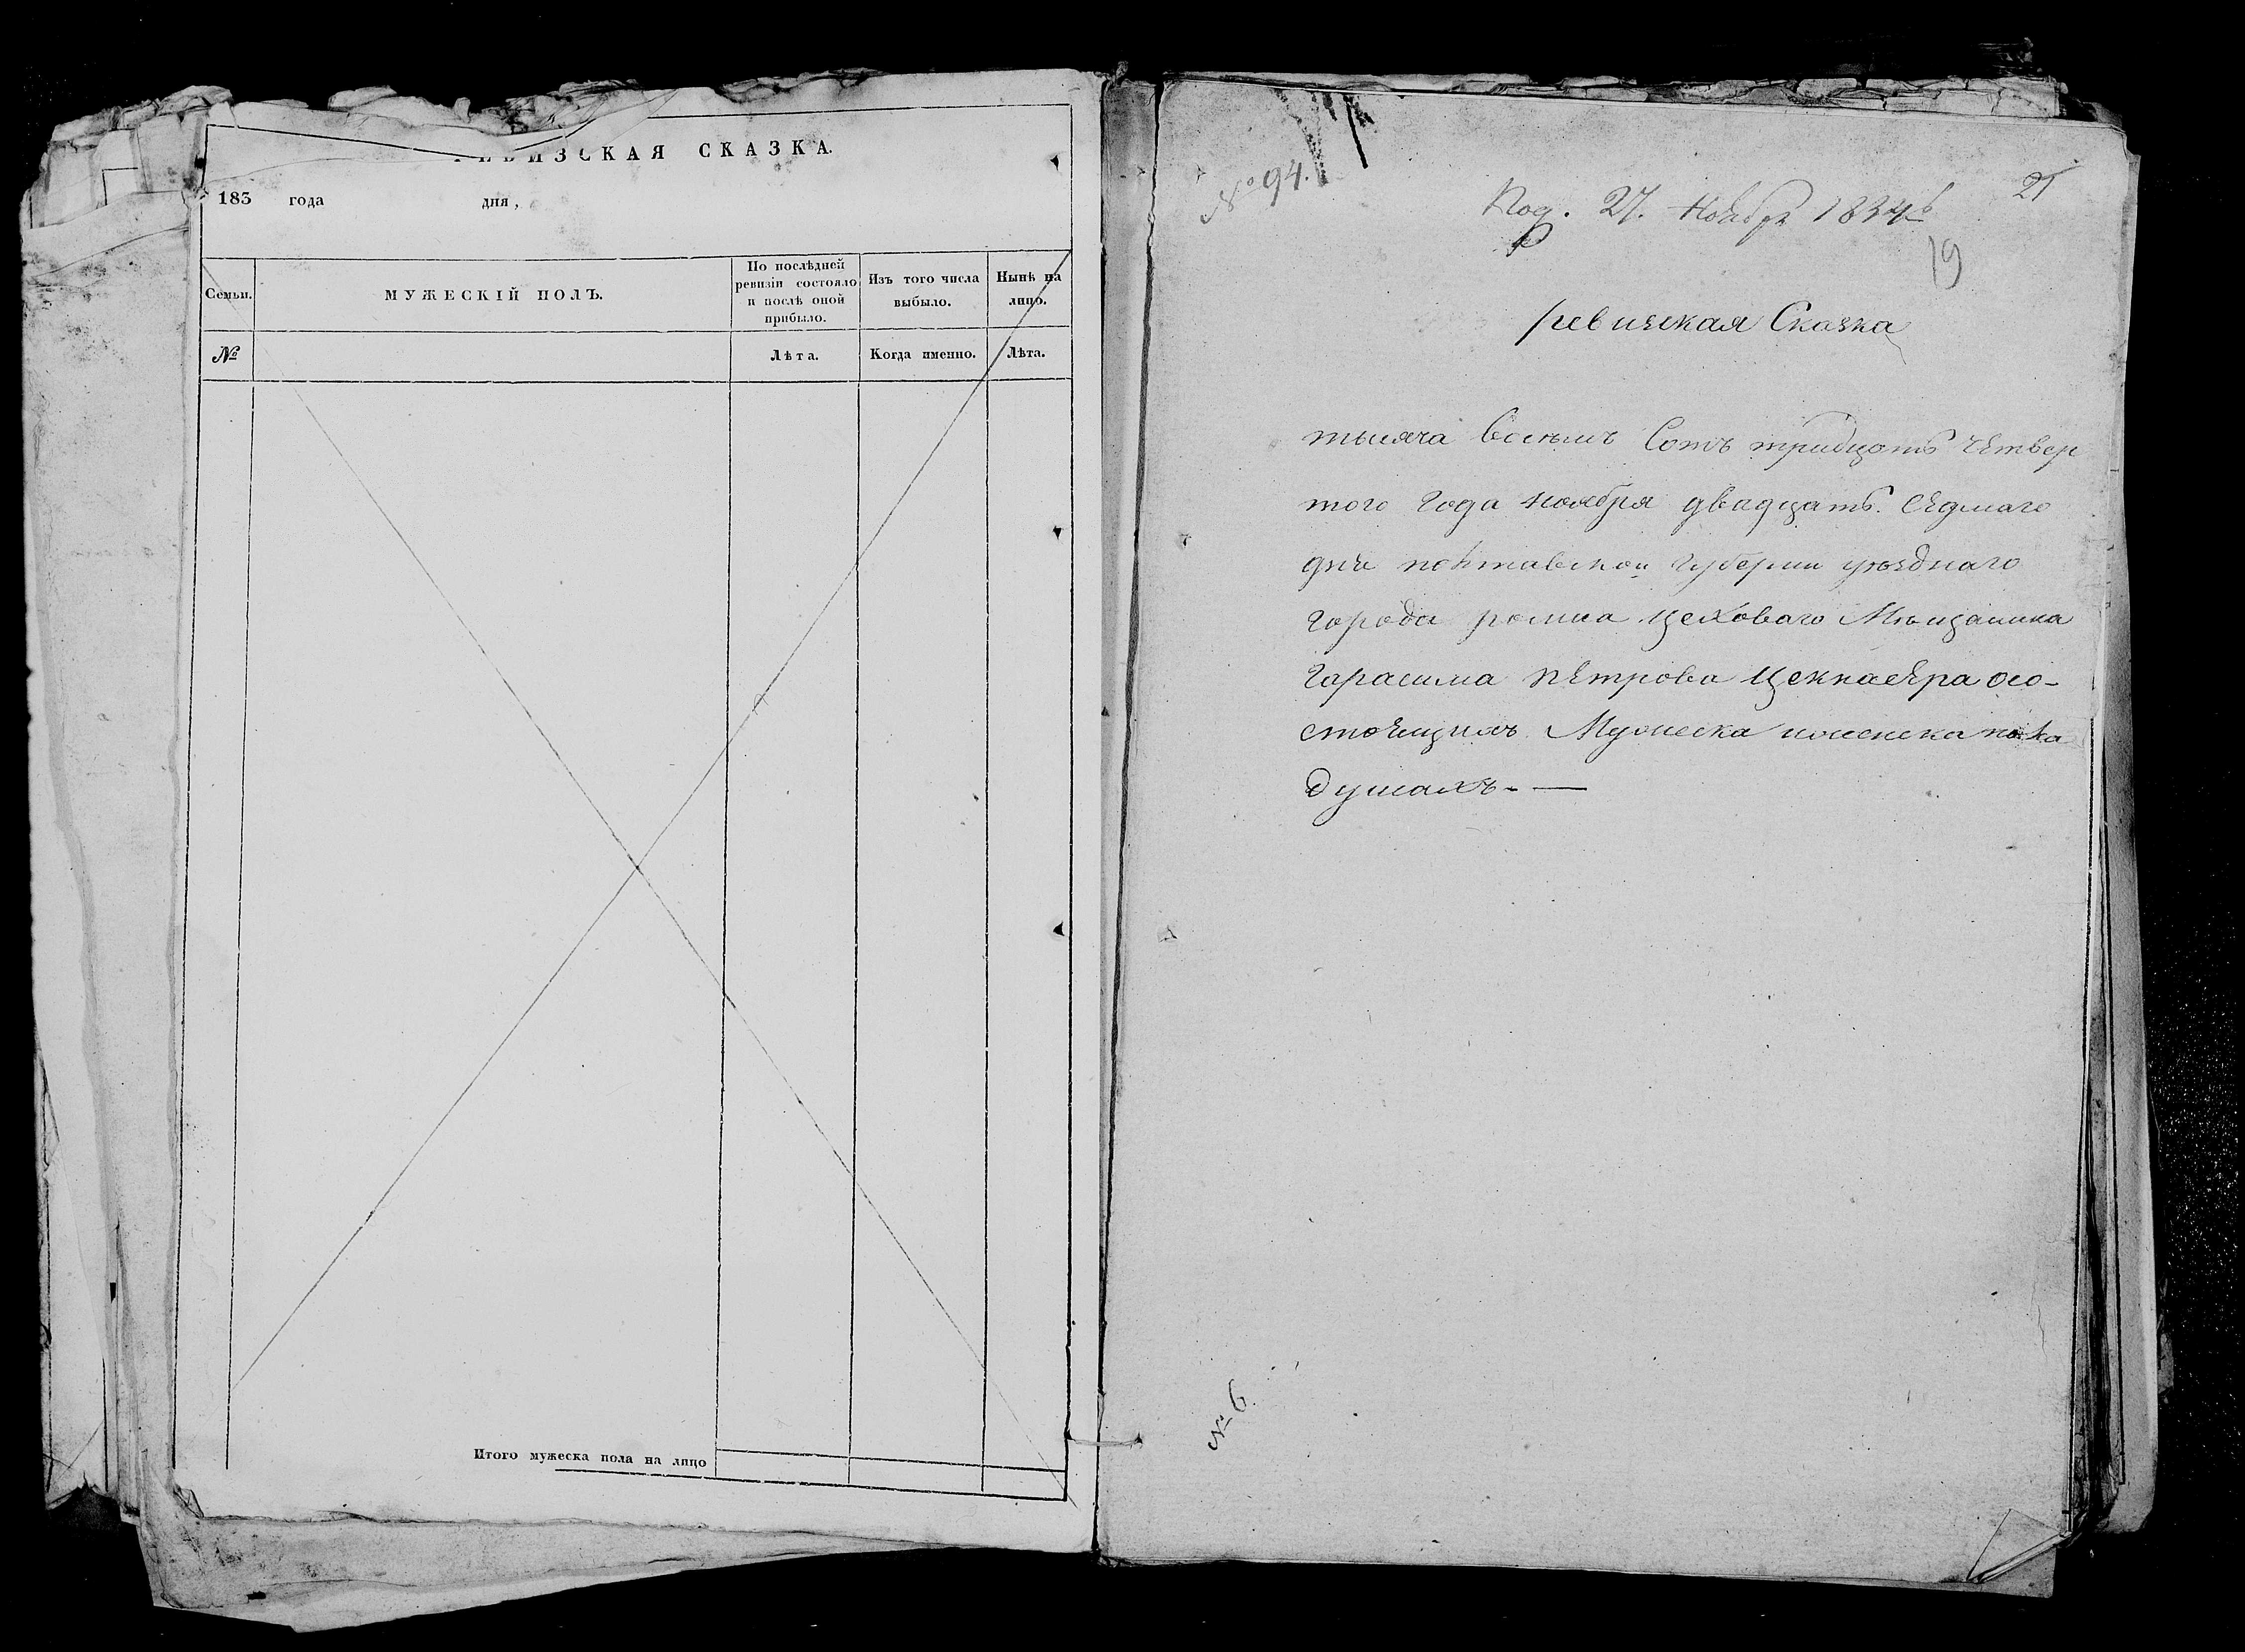 РЕВИЗСКАЯ СКАЗКА.
183 года дня,
Семьи.
МУЖЕСКІЙ ПОЛЪ.
По послѣдней ревизіи состояло и послѣ оной прибыло.
Изъ того числа выбыло.
Нынѣ на лицо.
№
Лѣта.
Когда именно.
Лѣта.
Итого мужеска пола на лицо
№ 94.
Под. 27. Ноября 1834
21
19
ревизская Сказка
тысяча восемъ Сотъ тридцать четвер
того года ноября двадцать седмаго
дня полтавской губерни уѣзднаго
города ромна цеховаго Мѣщанина
Гарасима петрова осо-
стоящихъ Мужеска иженска пола
душахъ. —
№ 6.